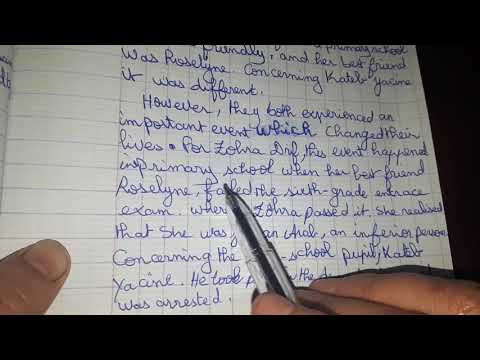 friendly, and primary school
was Roselyne. Concerning Kateb yacine
it was different.
However, they both experienced an
important event which changed their
lives. For Zohra Drif, this event happened
in primary school when her best friend
Roselyne, failed the sixth-grade entrace
exam. Zohra passed it. She realised
that She was an Arab, an inferior person
Concerning the -school pupil, Kateb
Yacine. He took the
was arrested.